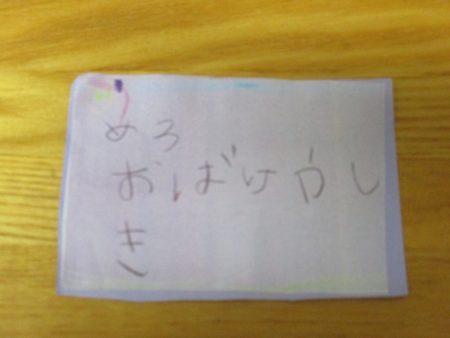 めろ
おばけやし
き